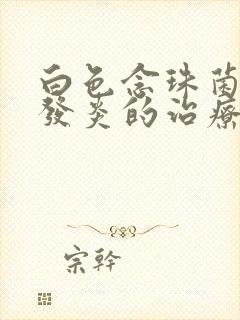 白色念珠菌
發炎的治療
宗幹